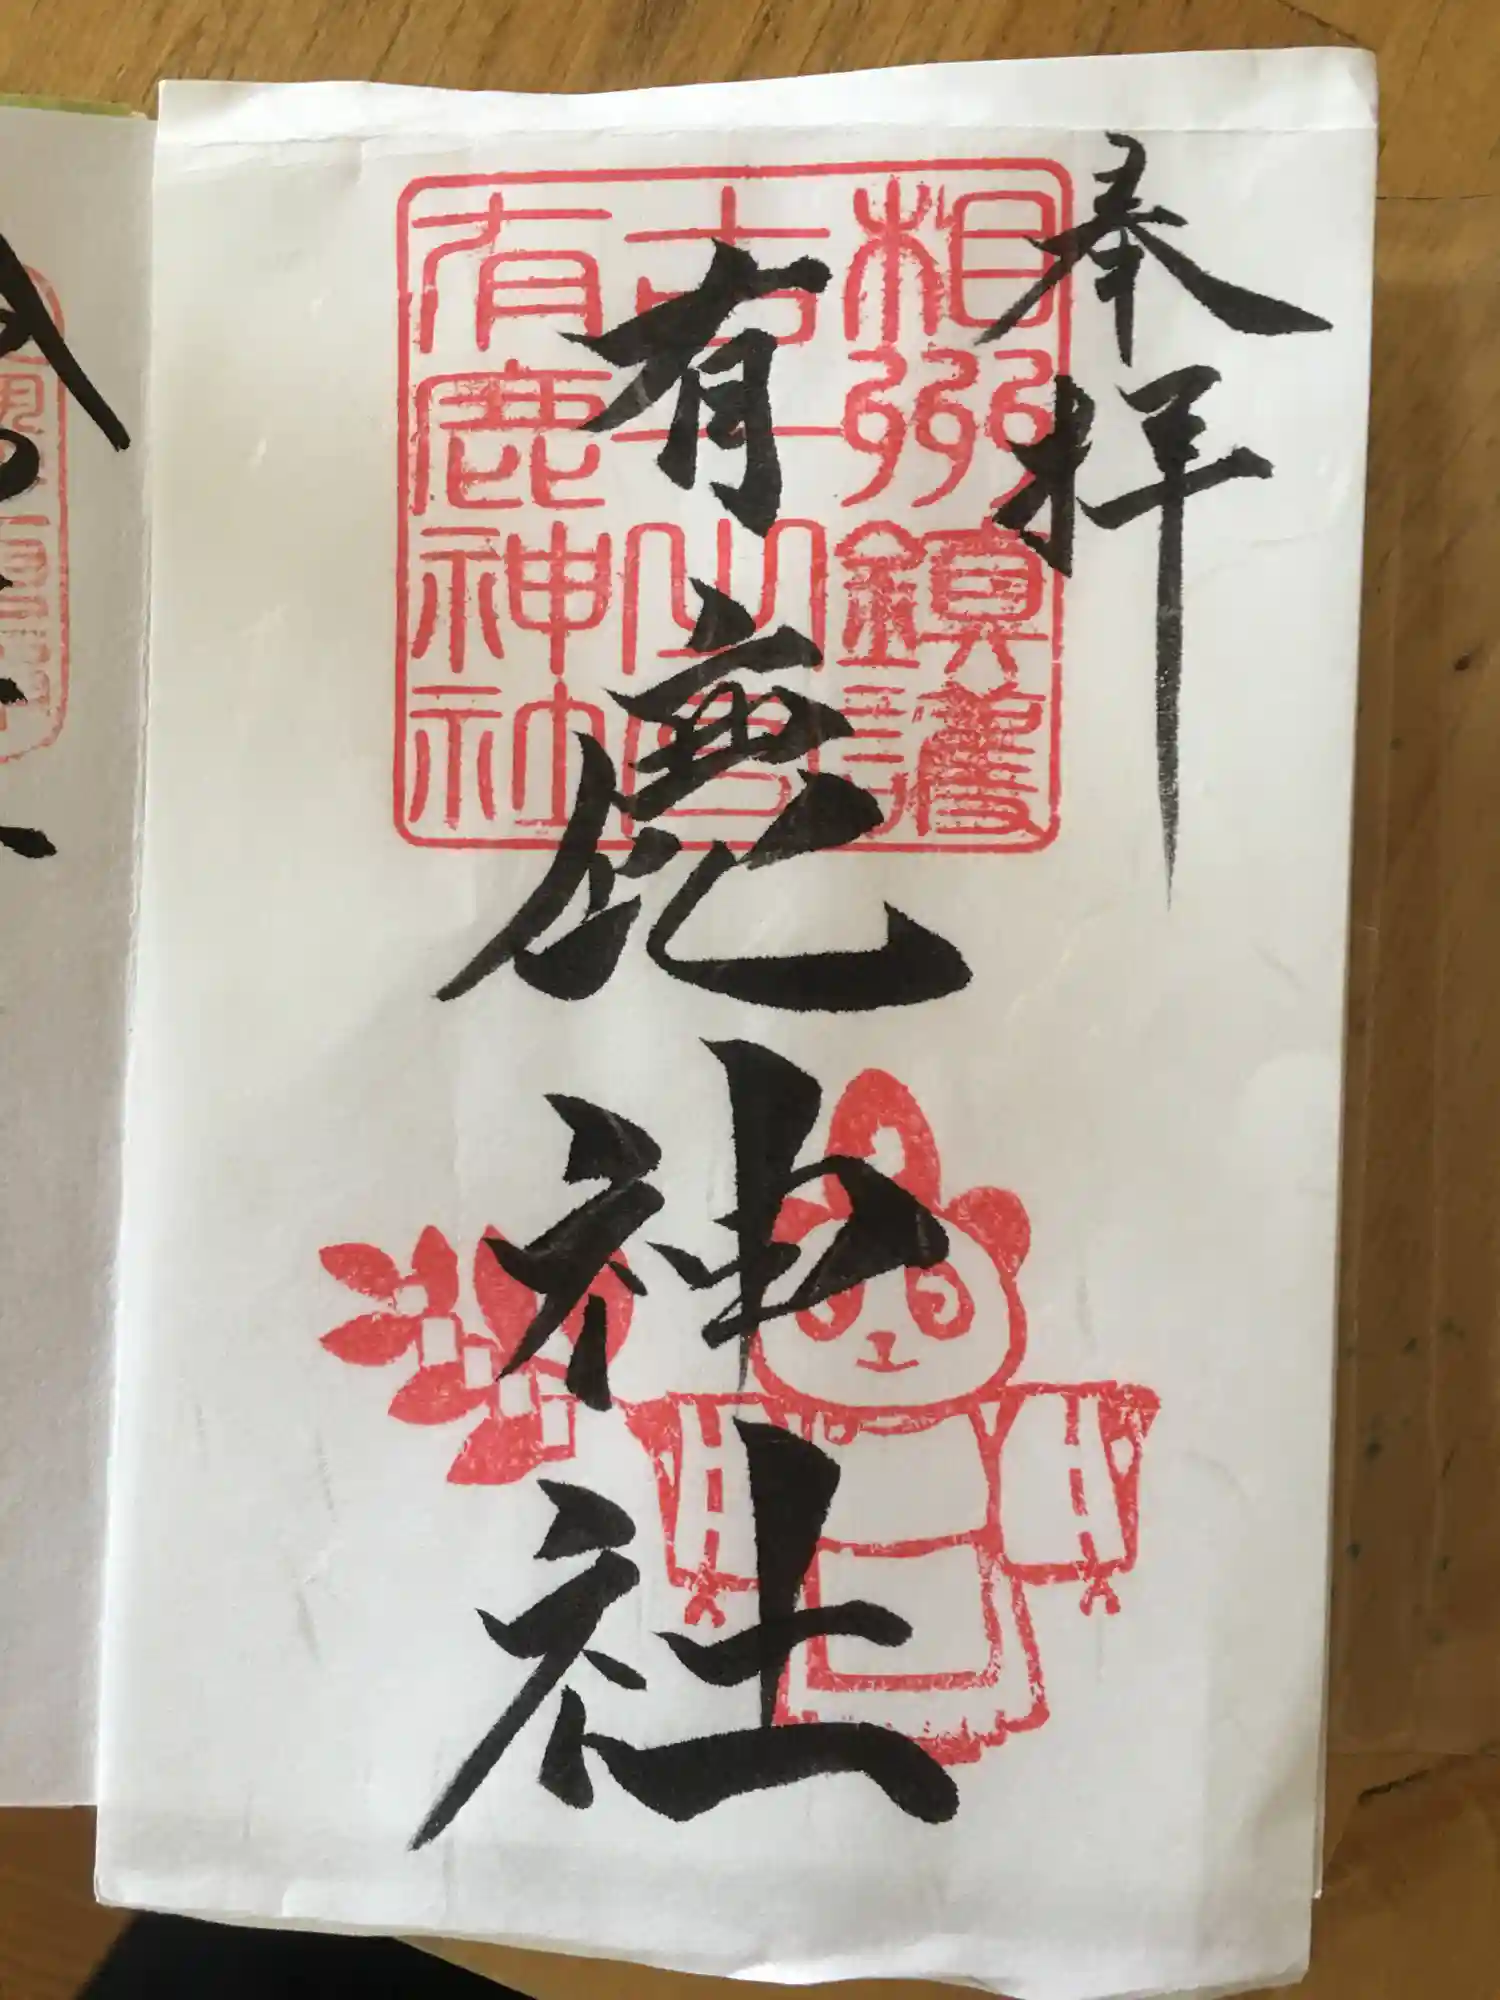 奉拝
相州鎮護
有鹿神社
有鹿神社